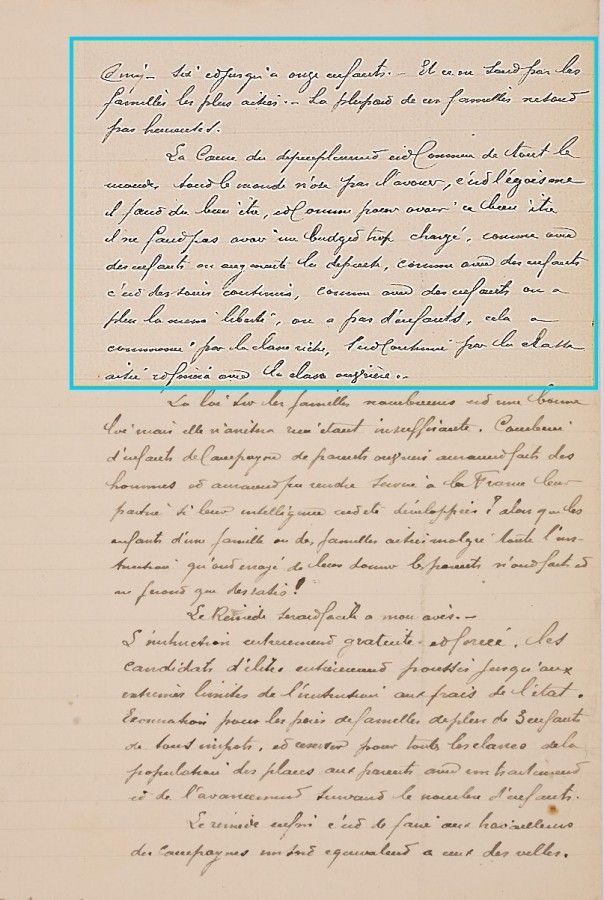 Cinq – six et jusqu'à onze enfants. – Et ce ne sont pas les
familles les plus aisées. – La plupart de ces familles ne sont
pas heureuses.
La Cause du dépeuplement est Connue de tout le
monde, tout le monde n'ose pas l'avouer, c'est l'égoisme
il faut du bien être, et Comme pour avoir ce bien être
il ne faut pas avoir un budget trop chargé, comme avec
des enfants on augmente la dépense, comme avec des enfants
c'est des soucis continuels, comme avec des enfants on a
plus la même liberté, on a pas d'enfants, cela a
commencé par la classe riche, s'est Continué par la classe
aisée et finira avec la classe ouvrière. –
La loi sur les familles nombreuses est une bonne
loi mais elle n'arrêtera rien étant insuffisante. Combien
d'enfants de Campagne de parents ouvriers auraient faits des
hommes et auraient pu rendre service à la France leur
patrie si leur intelligence eut été développée ? alors que les
enfants d'une famille ou des familles aisées malgré toute l'ins-
truction qu'ont essayé de leur donner les parents n'ont fait et
ne feront que des ratés !
Le Remède serait facile a mon avis. –
L'instruction entièrement gratuite et forcée, les
candidats d'élite entièrement poussés jusqu'aux
extrêmes limites de l'instruction aux frais de l'état.
Exonération pour les pères de familles de plus de 3 enfants
de tous impots, et réserver pour toutes les classes de la
population des places aux parents avec un traitement
et de l'avancement suivant le nombre d'enfants.
Le remède enfin c'est de faire aux travailleurs
des Campagnes un sort équivalent a ceux des villes.